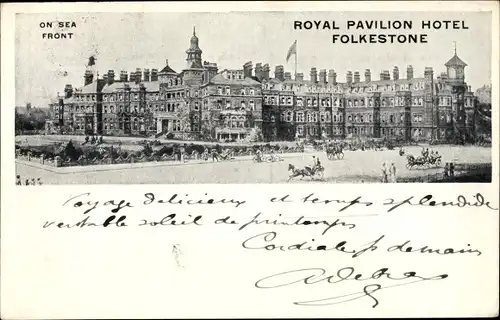 ON SEA
FRONT
ROYAL PAVILION HOTEL
FOLKESTONE
Voyage délicieux et temps splendide
véritable soleil de printemps
Cordiale p. demain